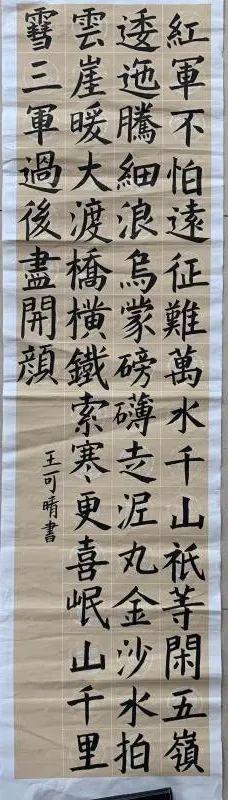 紅軍不怕遠征難萬水千山祗等閑五嶺
逶迤騰細浪烏蒙磅礴走泥丸金沙水拍
雲崖暖大渡橋橫鐵索寒更喜岷山千里
雪三軍過後盡開顔
王可晴書